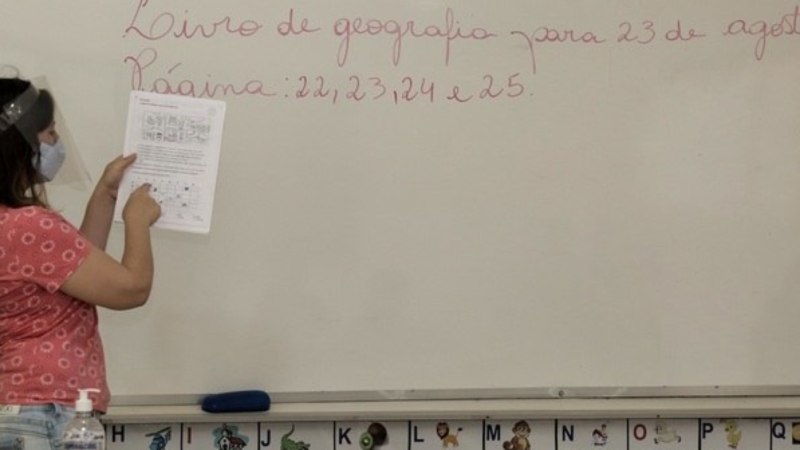 Livro de geografia para 23 de agost
Página: 22, 23, 24 e 25.
H I J K L M N O P Q